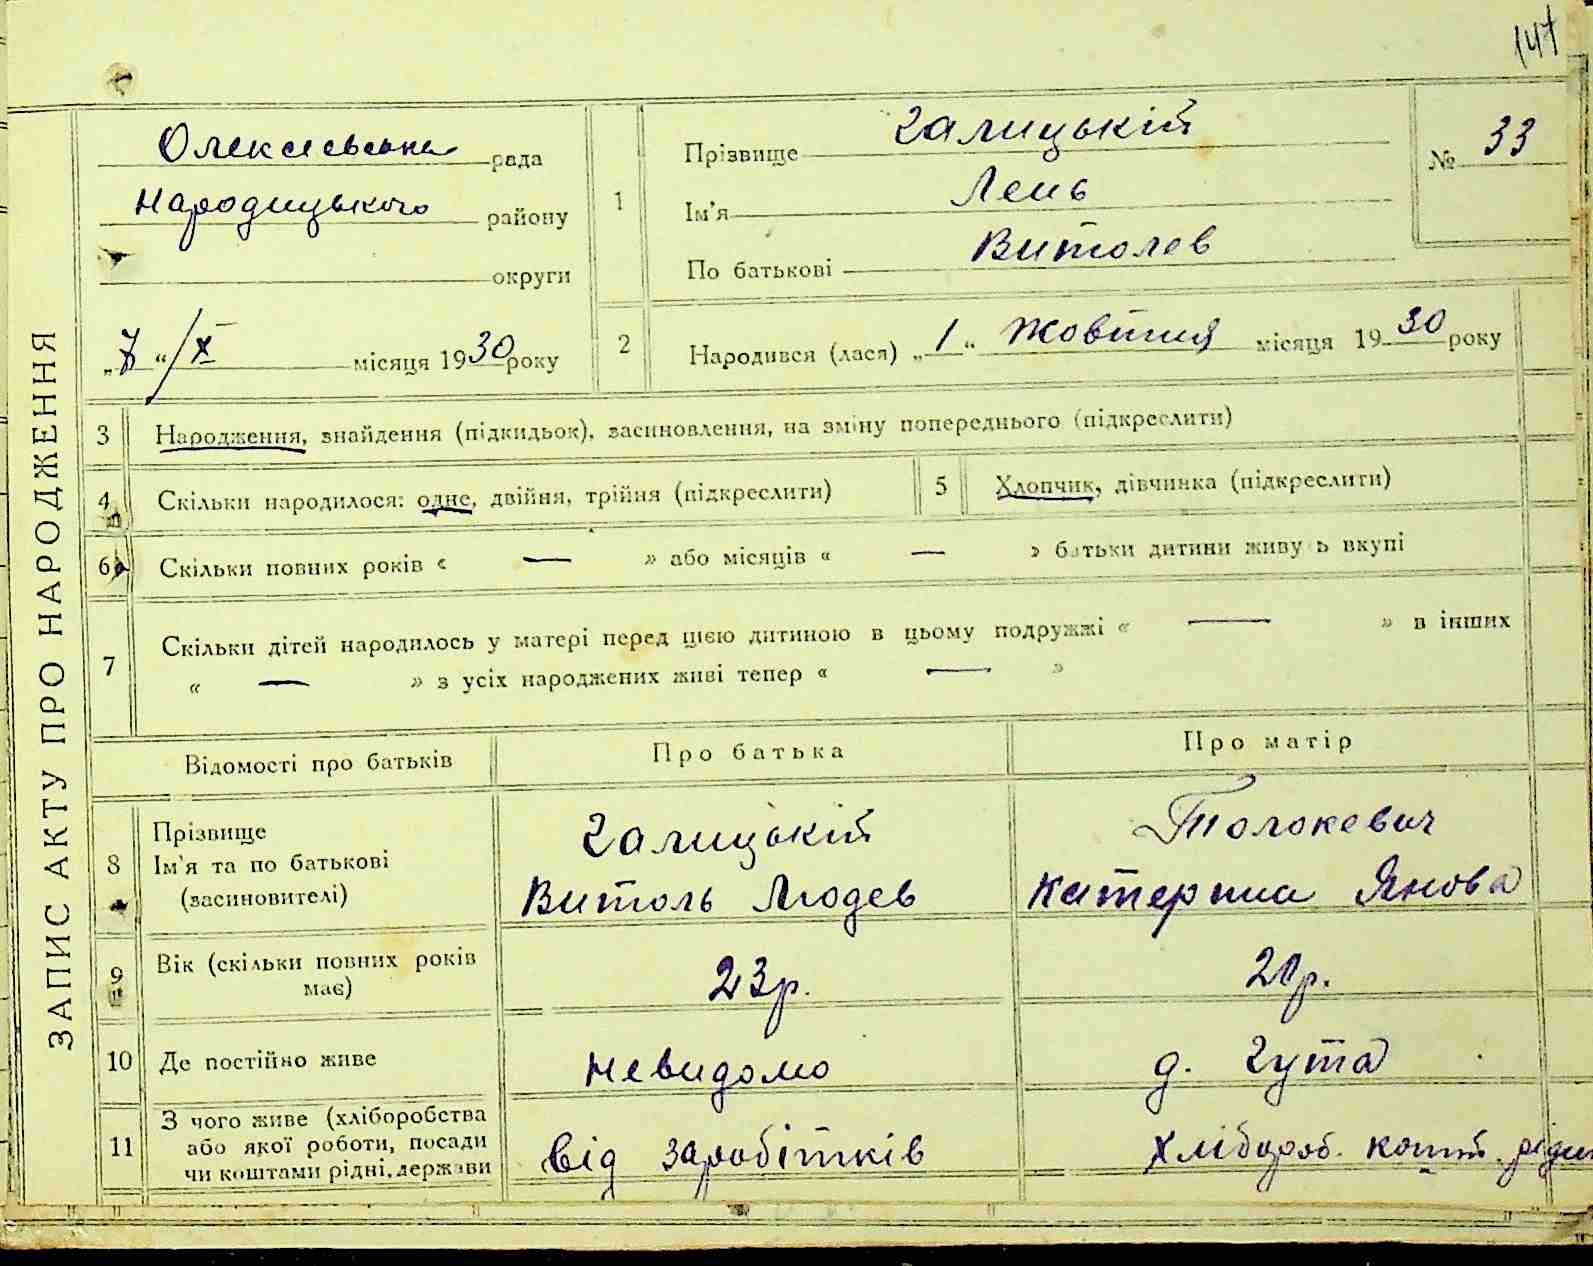 147
ЗАПИС АКТУ ПРО НАРОДЖЕННЯ
Олексиевська рада
Народицького району
округи
„7“/X місяця 1930 року
1
Прізвище Галицький
Ім'я Лень
По батькові Витолев
№ 33
2 Народився (лася) „1“ Жовтня місяця 1930 року
3 Народження, знайдення (підкидьок), засиновлення, на зміну попереднього (підкреслити)
4 Скільки народилося: одне, двійня, трійня (підкреслити) 5 Хлопчик, дівчинка (підкреслити)
6 Скільки повних років « — » або місяців « — » батьки дитини живуть вкупі
7 Скільки дітей народилось у матері перед цією дитиною в цьому подружжі « — » в інших
« — » з усіх народжених живі тепер « — »
Відомості про батьків Про батька Про матір
8 Прізвище Галицькій Толокевич
Ім'я та по батькові Витоль Людев Катерина Янова
(засиновителі)
9 Вік (скільки повних років має) 23р. 21р.
10 Де постійно живе Невидомо д. Гута
11 З чого живе (хліборобства
або якої роботи, посади від заробітків хлібороб. кошт. рідн
чи коштами рідні, держави